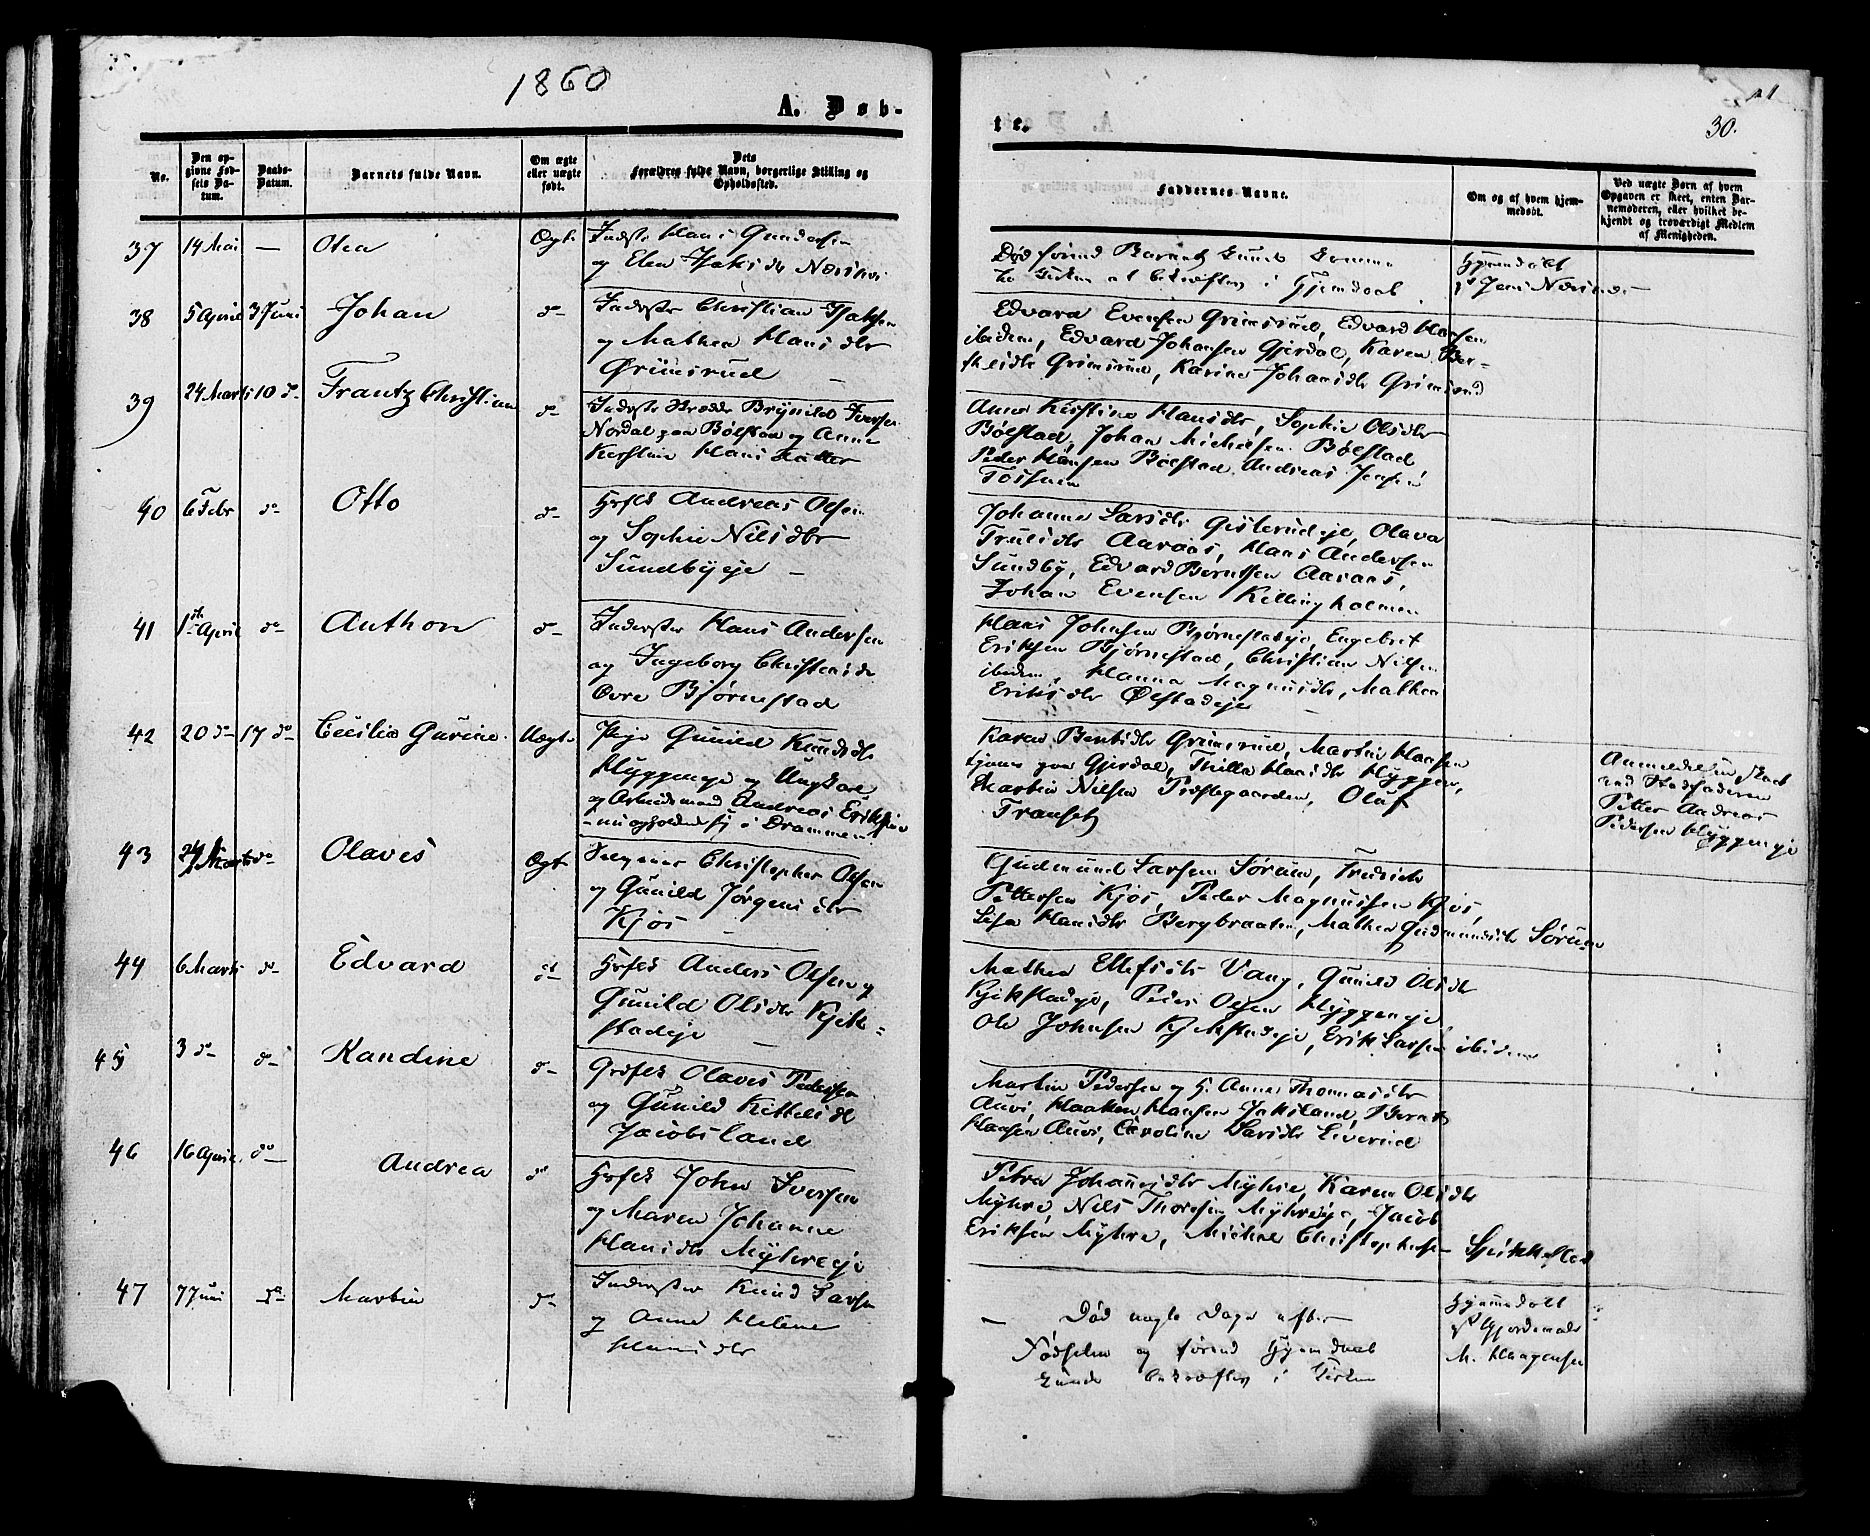 1860
A. Døb-
te.
30.
No.
Den opgivne Fødsels Datum.
Daabs-Datum.
Barnets fulde Navn.
Om ægte eller uægte født.
Dets Forældres fulde Navn, borgerlige Stilling og Opholdssted.
Faddernes Navne.
Om og af hvem hjemmedøbt.
Ved uægte Børn af hvem Opgaven er skeet, enten Barnemoderen, eller hvilket bekjendt og troværdigt Medlem af Menigheden.
37 14 Mai — Olea Ægt. Inderst Hans Gundersen
og Elen Isaksdr
Død førend Barnet kunde komme
til Kirken at bekræftes i Hjemdaab
Hjemdøbt
38 5 April 3 Juni Johan do Inderster Christian Isaksen
og Mathea Hansdr
Grimsrud —
Edvard Evensen Grimsrud, Edvard Hansen
ibidem, Edvard Johansen Gjerdal, Karen
Grimsrud, Karine Johansdr Grimsrud
39 24 Marts 10 do Frantz Christian do Inderst Brynild Iversen
Nordal paa Bølstad og Anne
Kirstine Hansdatter
Anne Kirstine Hansdr, Sophie Olsdr
Bølstad, Johan Michelsen Bølstad
Peder Hansen Bølstad, Andreas Jensen
40 6 Febr do Otto do Husfk Andreas Olsen
og Sophie Nilsdtr
Sundbyeje —
Johanne Larsdtr Gislerudeje, Olava
Trulsdtr Aaraas, Hans Andersen
Sundby, Edvard Berntsen Aaraas,
Johan Evensen Killingholmen
41 1st April do Anthon do Inderster Hans Andersen
og Ingeborg Christensdr
Øvre Bjørnestad
Hans Johnsen Bjørnestadeje, Engebret
Eriksen Bjørnestad, Christian Nilsen
ibidem, Hanna Magnusdtr, Mathea
Eriksdtr Ølstadeje —
42 20 do 17 do Cecilia Gurine Uægte Pige Gunild Knudsdtr
Hyggeneje og Ungkarl
og Arbeidsmand Andreas Eriksen
nu opholder sig i Drammen
Karen Berntsdtr Grimsrud, Martin Hansen
tjener paa Gjerdal, Thilla Hansdtr Hyggen,
Martin Nilsen Præstegaarden, Oluf
Anmeldelsen skeet
ved Stedfaderen
Petter Andreas
Pedersen Hyggeneje
43 24 Marts do Olaves Ægt Selveier Christopher Olsen
og Gunild Jørgensdtr
Kjos —
Gudmund Larsen Sørum, Fredrick
Pettersen Kjos, Peder Magnussen Kjos,
Lisa Hansdtr Bergbraaten, Mathea Gudmundsdtr Sørum
44 6 Marts do Edvard do Husfk Anders Olsen og
Gunild Olsdtr Kjek-
stadeje —
Mathea Ellefsdtr Vang, Gunild Olsdtr
Kjekstadeje, Peder Olsen Hyggeneje
Ole Johnsen Kjekstadeje, Erik Larsen ibidem
45 3 do do Kandine do Grdfk Olaves Pedersen
og Gunild Kittelsdtr
Jacobsland
Martin Pedersen og H. Anne Thomasdtr
Auvi, Haaken Hansen Jakslandd, Bernt
Hansen Auvi, Caroline Larsdtr Liverud
46 16 April do Andrea do Husfk John Iversen
og Maren Johanne
Hansdtr Myhreeje
Petra Johannesdtr Myhre, Karen Olsdtr
Myhre, Nils Thoresen Myhreeje, Jacob
Eriksen Myhre, Michal Christophersen Spikkestad
47 7 Juni do Martin do Inderster Knud Larsen
og Anne Helene
Hansdtr
— Død nogle Dage efter
Fødselen og førend Hjemdaab
kunde bekræftes i Kirken
Hjemmedøbt
af Gjordemoder
M. Haagensen